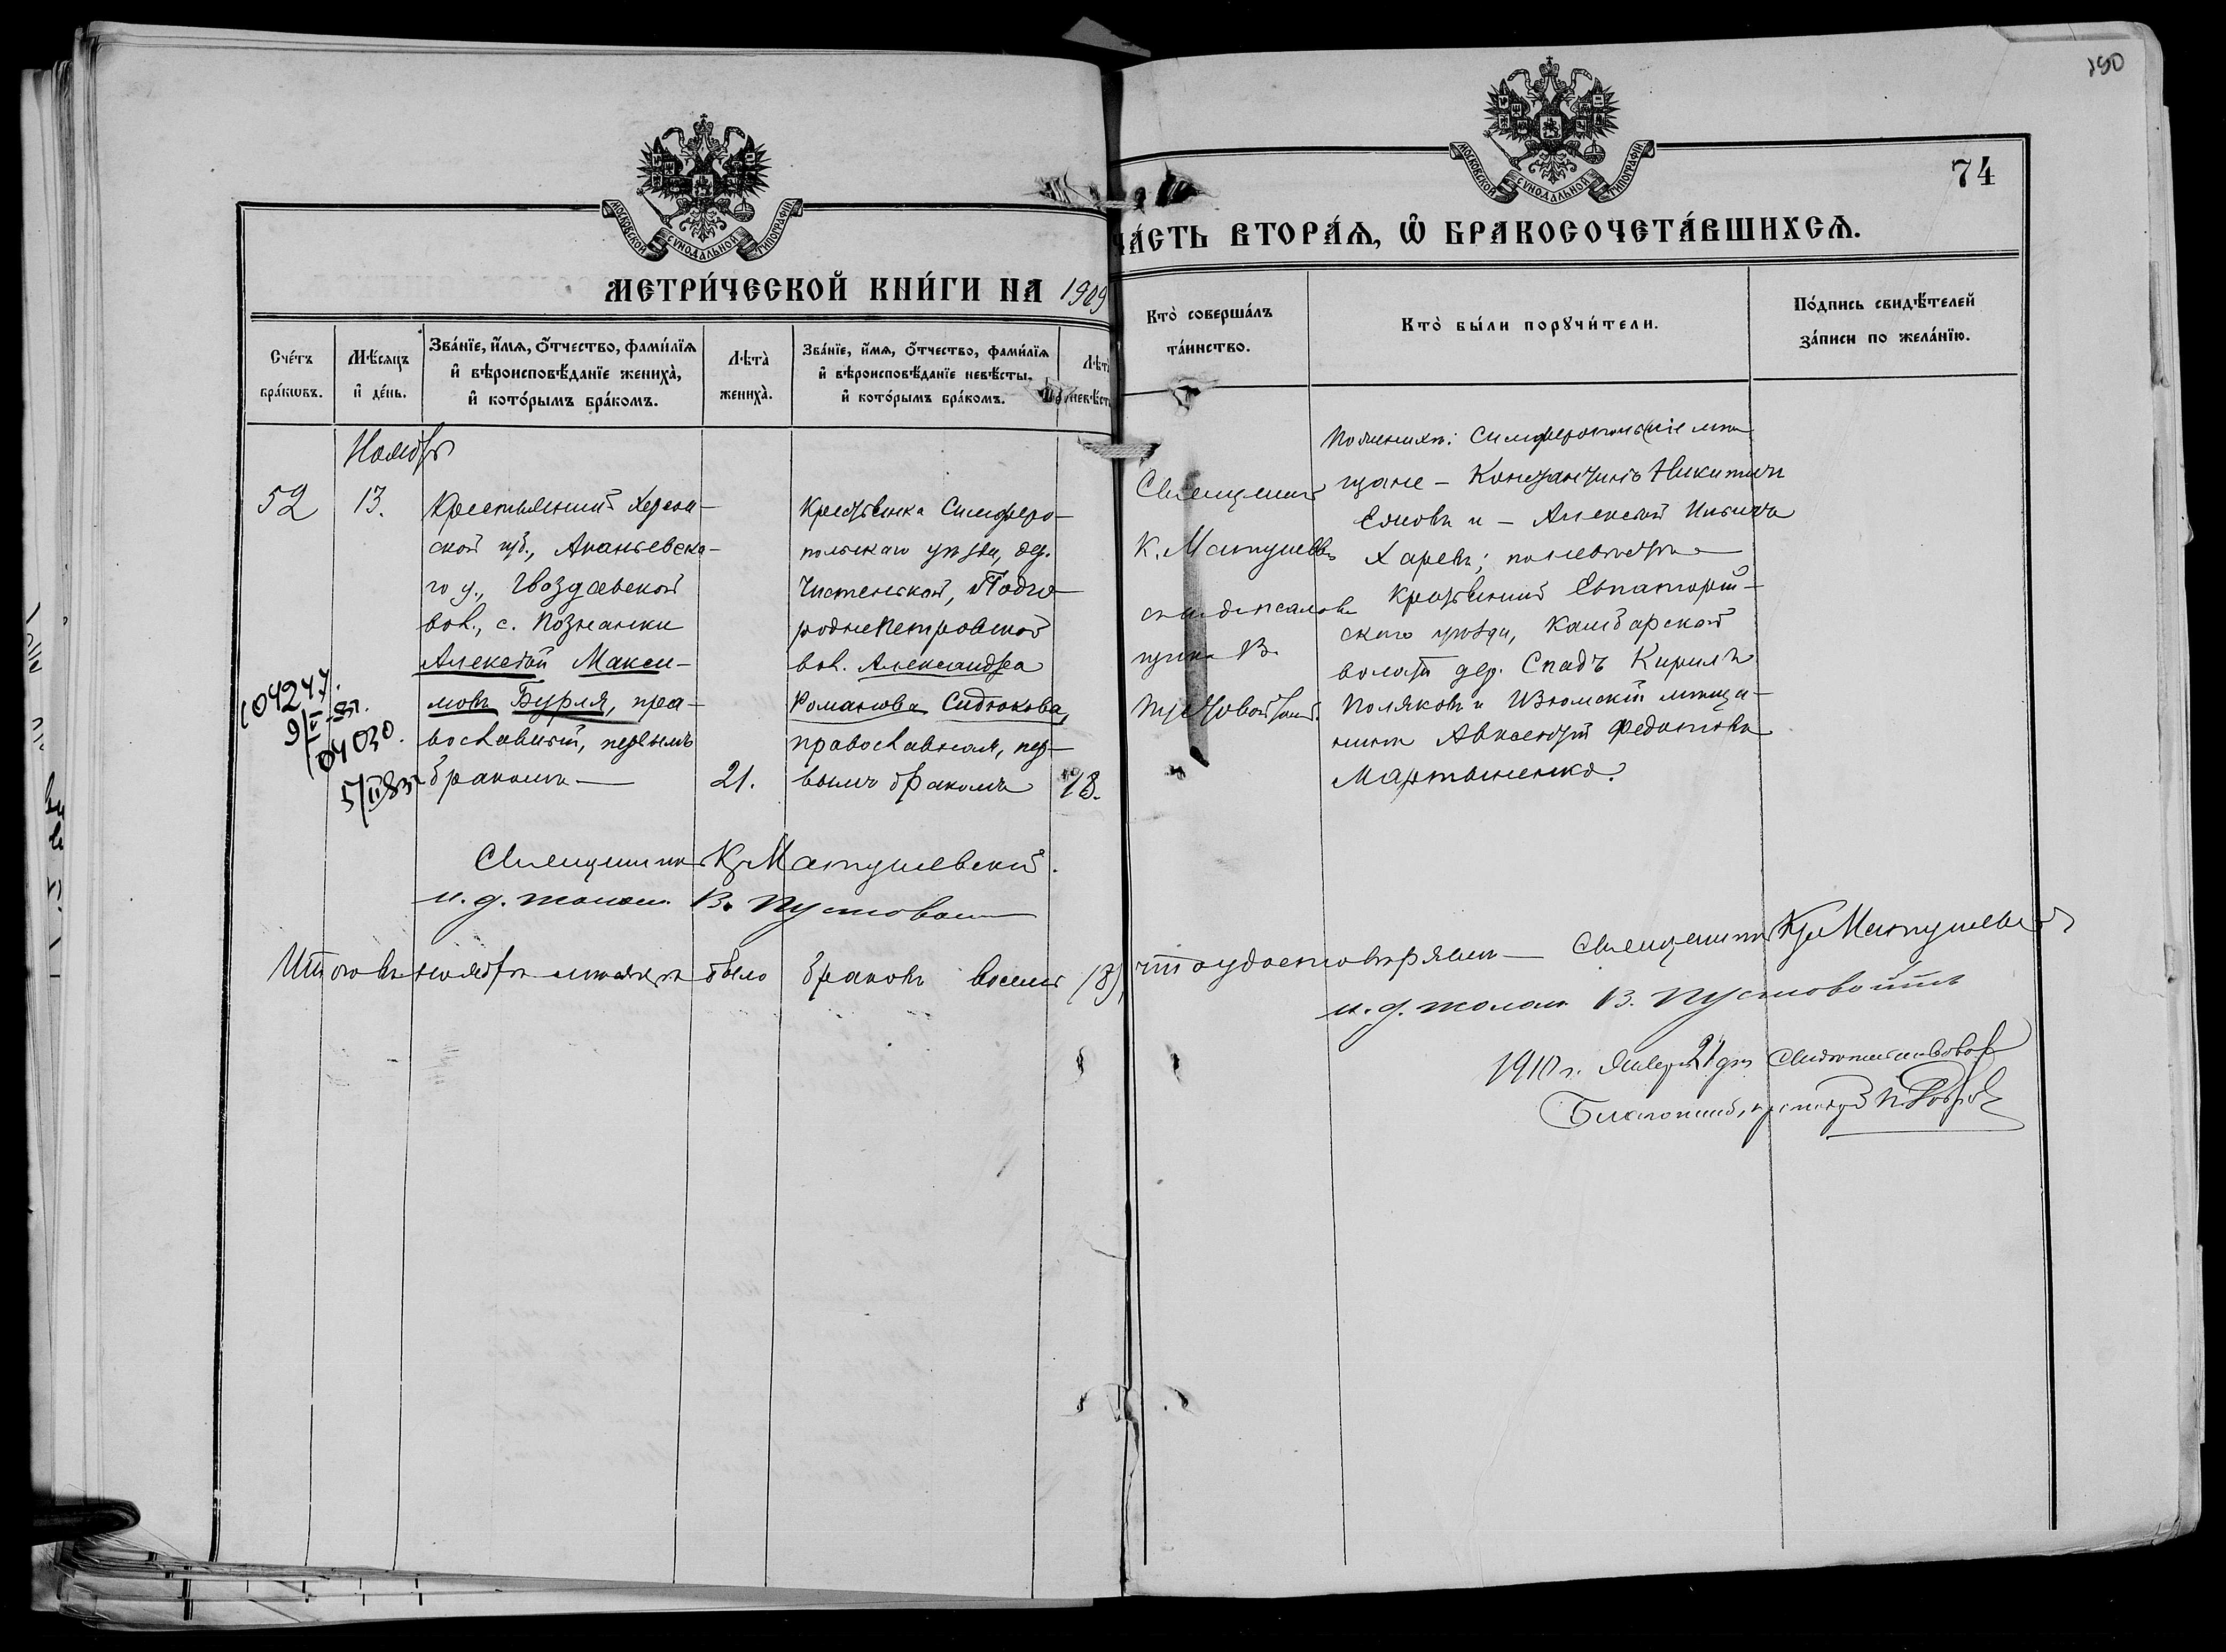 150
74
МОСКОВСКОЙ СѴНОДАЛЬНОЙ ТИПОГРАФІИ
МОСКОВСКОЙ СѴНОДАЛЬНОЙ ТИПОГРАФІИ
МЕТРИ́ЧЕСКОЙ КНИ́ГИ НА 1909
ЧА́СТЬ ВТОРА́Ѧ, Ѡ҆ БРАКОСОЧЕТА́ВШИХСѦ.
Сче́тъ
бра́кѡвъ.
Мѣ́сѧцъ
и҆ де́нь.
Зва́нїе, и҆́мѧ, ѻ҆́тчество, фами́лїѧ
и҆ вѣроисповѣ́данїе жениха̀,
и҆ кото́рымъ бра́комъ.
Лѣта̀
жениха̀.
Зва́нїе, и҆́мѧ, ѻ҆́тчество, фами́лїѧ
и҆ вѣроисповѣ́данїе невѣ́сты,
и҆ кото́рымъ бра́комъ.
Лѣта̀
невѣст
Кто̀ соверша́лъ
та́инство.
Кто̀ бы́ли порꙋчи́тели.
По́дпись свидѣ́телей
за́писи по жела́нїю.
Ноябрь
52
13.
Крестьянинъ Херсон-
ской губ., Ананьевска-
го у., Гвоздавской
вол., с. Познанки
Алексѣй Макси-
мовъ Бурля, пра-
вославный, первымъ
бракомъ —
21.
Крестьянка Симферо-
польскаго уѣзда, дер.
Чистенькой, Подго-
родне Петровской
вол. Александра
Романова Сидюкова,
православная, пер-
вымъ бракомъ
18.
Священникъ
К. Матушевс
псаломщика В.
Пустовойтъ.
По женихѣ: Симферопольскіе мѣ-
щане — Константинъ Никитинъ
и — Алексѣй
Харевъ; по невѣстѣ —
крестьянинъ Евпаторій-
скаго уѣзда, Камбарской
волости дер. Спадъ Кирилъ
Поляковъ и Изюмскій мѣща-
нинъ Авксентій Федотовъ
Мартыненко.
104247.
9/II-83г.
104030.
5/II 83г
Священникъ К. Матушевскій.
и. д. псалом. В. Пустовойтъ
Итого въ ноябрѣ мѣсяцѣ было браковъ восемь (8),
что удостовѣряемъ — Священникъ К. Матушевскій
и. д. псалом. В. Пустовойтъ
1910 г. Января 21 дня
Благочинный, протоіерей